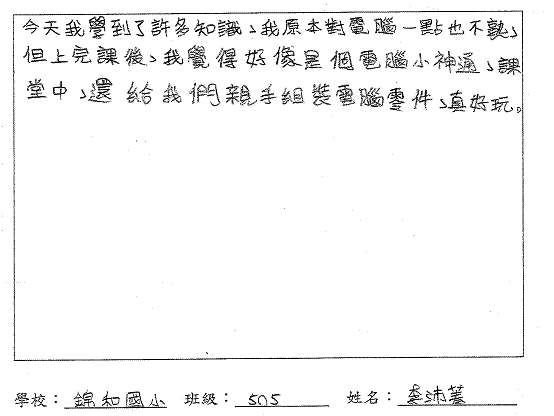 今天我學到了許多知識、我原本對電腦一點也不熟、
但上完課後、我覺得好像是個電腦小神通、課
堂中、還給我們親手組裝電腦零件、真好玩。
學校：錦和國小 班級：505 姓名：